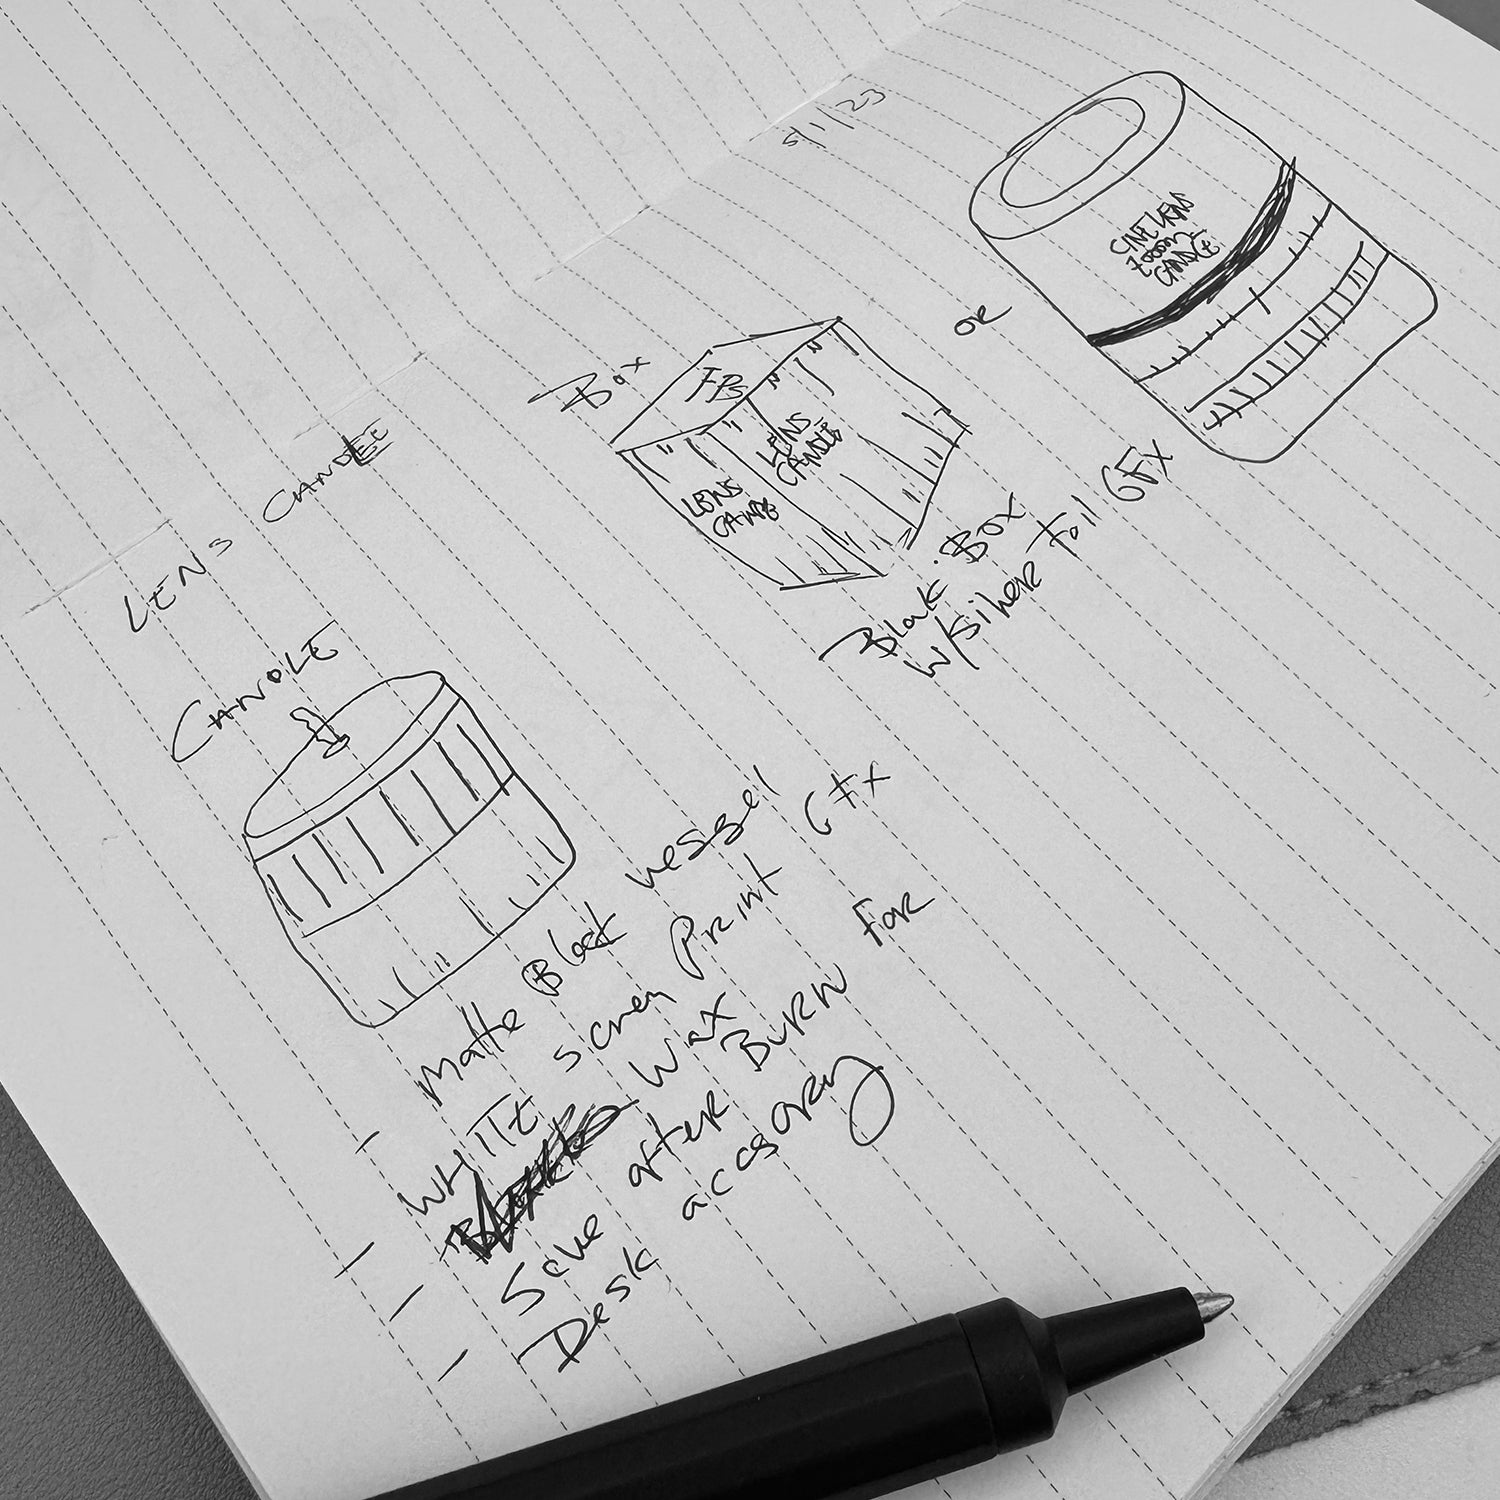 5/1/23
LENS CANDLE
CANDLE
Box
FPS
LENS
CANDLE
LENS
CANDLE
OR
CINE LENS
CANDLE
Black Box
w/silver Foil GFX
- Matte Black vessel
- WHITE Screen Print GFX
- Wax
- Save after Burn For
Desk accsory